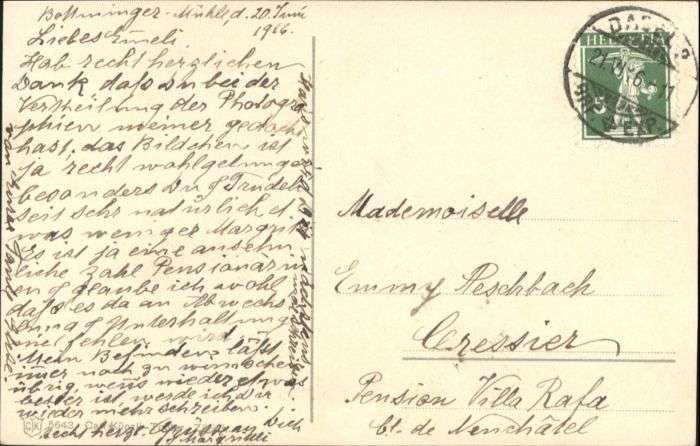 Bottminger-Mühle, d. 20. Juni
1916.
Liebes Emeli.
Hab recht herzlichen
Dank dafs Du bei der
Vertheilung der Photogra-
phien meiner gedacht
hast, das Bildchen ist
ja recht wohlgelungen
besonders Du & Trudeli
seit sehr natürlich d.
was weniger Margrit
Es ist ja eine ansehn
liche Zahl Pensionärin
en & glaube ich wohl
dafs es da an Abwechs
lung & Unterhaltung
nie fehlen wird
Mein Befinden läfst
immer noch zu wünschen
übrig, wenn wieder etwas
besser ist, werde ich Dir
wieder mehr schreiben.
recht herzl. Grüfse an Dich
Margritli
HELVETIA
BASEL 2
21.VI.16.-11
Mademoiselle
Emmy Peschbach
Cressier
Pension Villa Rafa
Ct. de Neuchâtel
5643